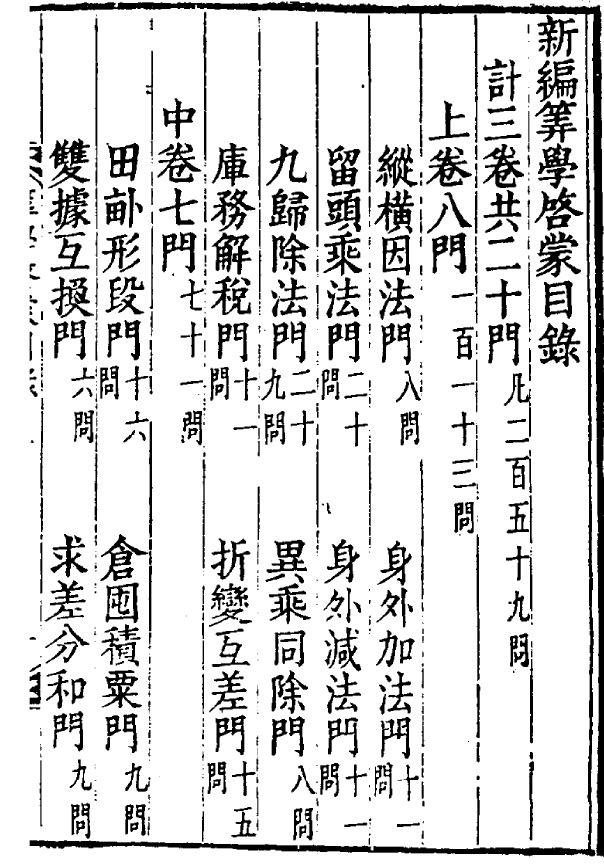 新編筭學啓蒙目錄
計三卷共二十門凡二百五十九問
上卷八門一百一十三問
縱橫因法門八問 身外加法門十一問
留頭乘法門二十問 身外減法門十一問
九歸除法門二十九問 異乘同除門八問
庫務解稅門十一問 折變互差門十五問
中卷七門七十一問
田畝形段門十六問 倉囤積粟門九問
雙據互換門六問 求差分和門九問